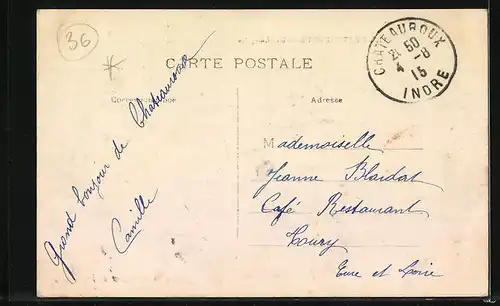 36
CHATEAUROUX
21 50
4 -8
15
INDRE
CARTE POSTALE
Correspondance
Adresse
Grand bonjour de Chateauroux
Camille
Mademoiselle
Jeanne
Café Restaurant
Eure et Loire